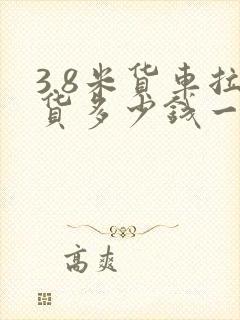 3.8米货车拉
货多少钱一
高爽